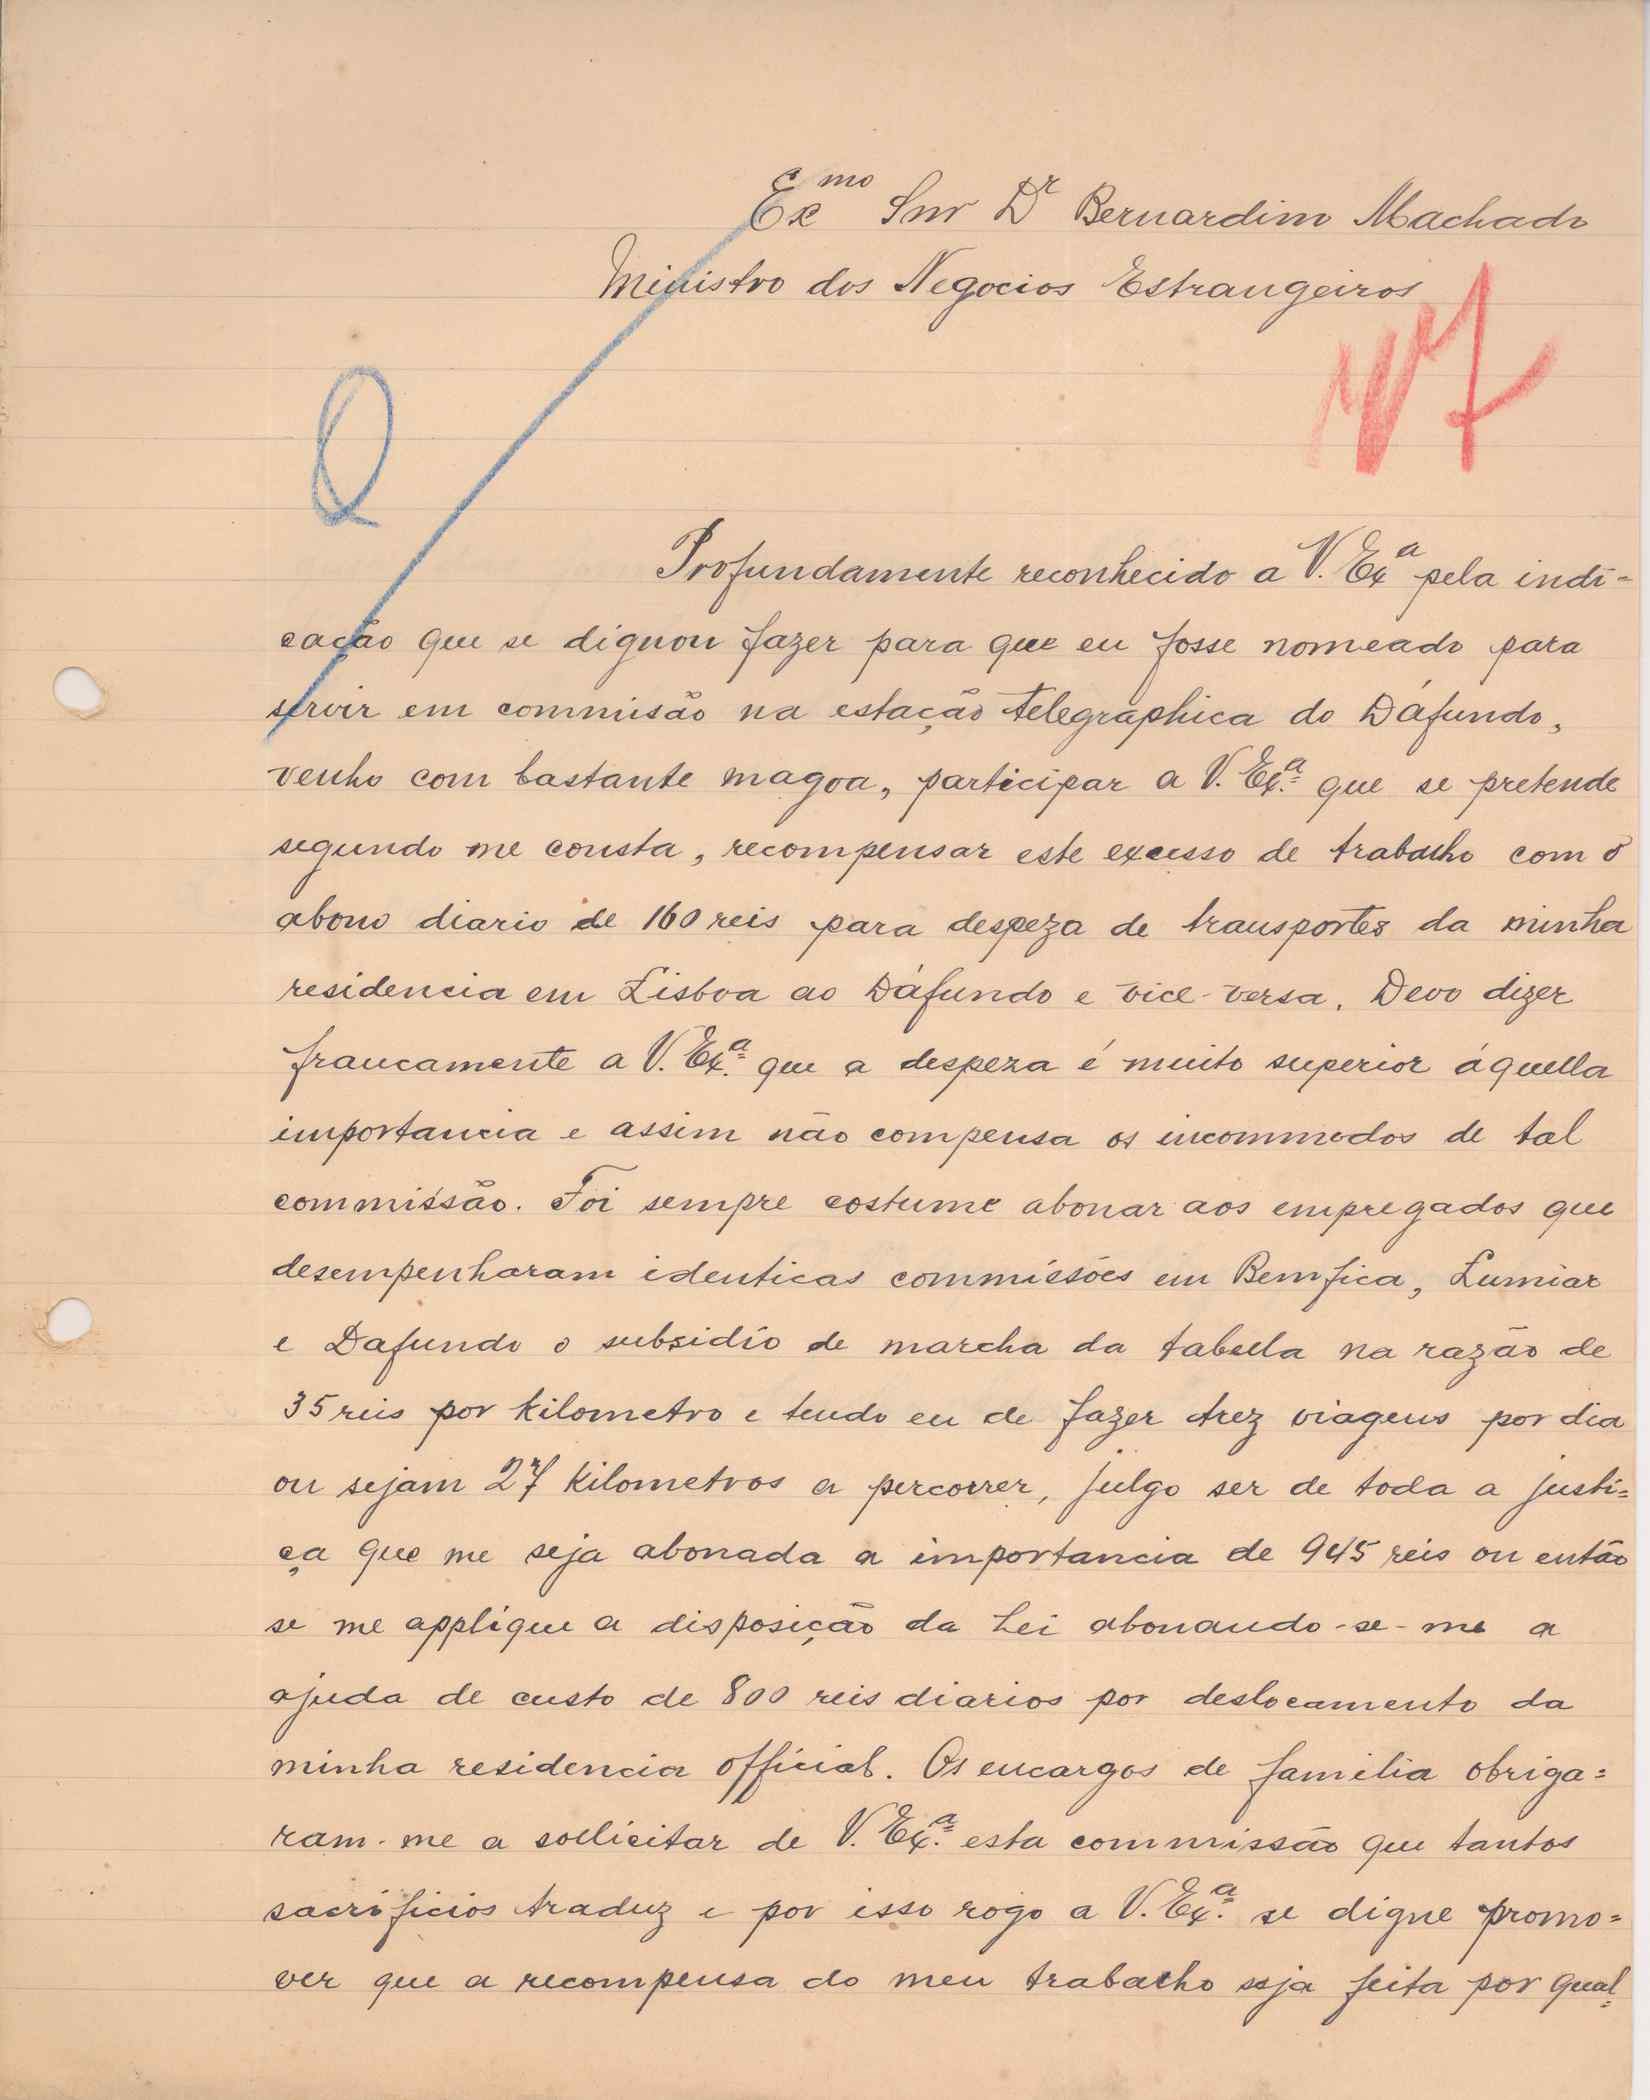 Exmo Snr Dr Bernardino Machado
Ministro dos Negocios Estrangeiros
Profundamente reconhecido a V. Exa pela indi-
cação que se dignou fazer para que eu fosse nomeado para
servir em commisão na estação telegraphica do Dáfundo,
venho com bastante magoa, participar a V. Exa. que se pretende
segundo me consta, recompensar este excesso de trabalho com o
abono diario de 160 reis para despeza de transportes da minha
residencia em Lisboa ao Dáfundo e vice-versa. Devo dizer
francamente a V. Exa. que a despeza é muito superior áquella
importancia e assim não compensa os incommodos de tal
commissão. Foi sempre costume abonar aos empregados que
desempenharam identicas commissões em Bemfica, Lumiar
e Dafundo o subsidio de marcha da tabella na razão de
35 reis por kilometro e tendo eu de fazer trez viagens por dia
ou sejam 27 kilometros a percorrer, julgo ser de toda a justi=
ça que me seja abonada a importancia de 945 reis ou então
se me applique a disposição da Lei abonando-se-me a
ajuda de custo de 800 reis diarios por deslocamento da
minha residencia official. Os encargos de familia obriga=
ram-me a sollicitar de V. Exa. esta commissão que tantos
sacrificios traduz e por isso rogo a V. Exa. se digne promo=
ver que a recompensa do meu trabalho seja feita por qual=